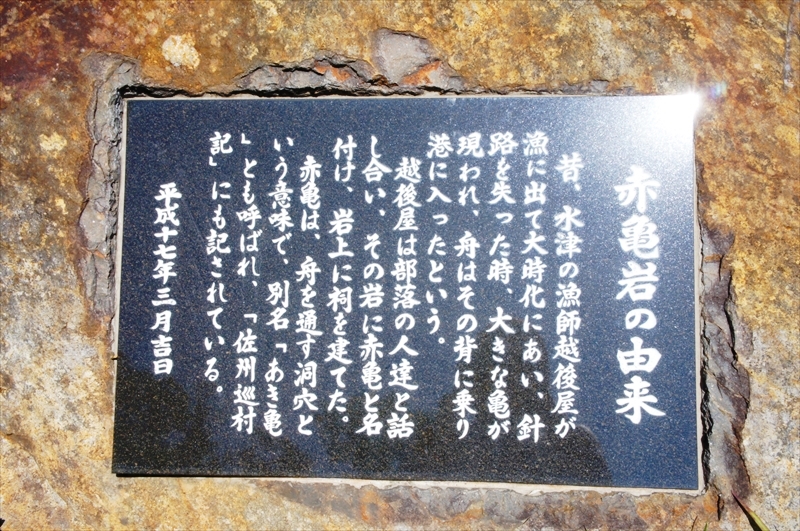 赤亀岩の由来
昔、水津の漁師越後屋が
漁に出て大時化にあい、針
路を失った時、大きな亀が
現われ、舟はその背に乗り
港に入ったという。
越後屋は部落の人達と話
し合い、その岩に赤亀と名
付け、岩上に祠を建てた。
赤亀は、舟を通す洞穴と
いう意味で、別名「あき亀
」とも呼ばれ、「佐州巡村
記」にも記されている。
平成十七年三月吉日